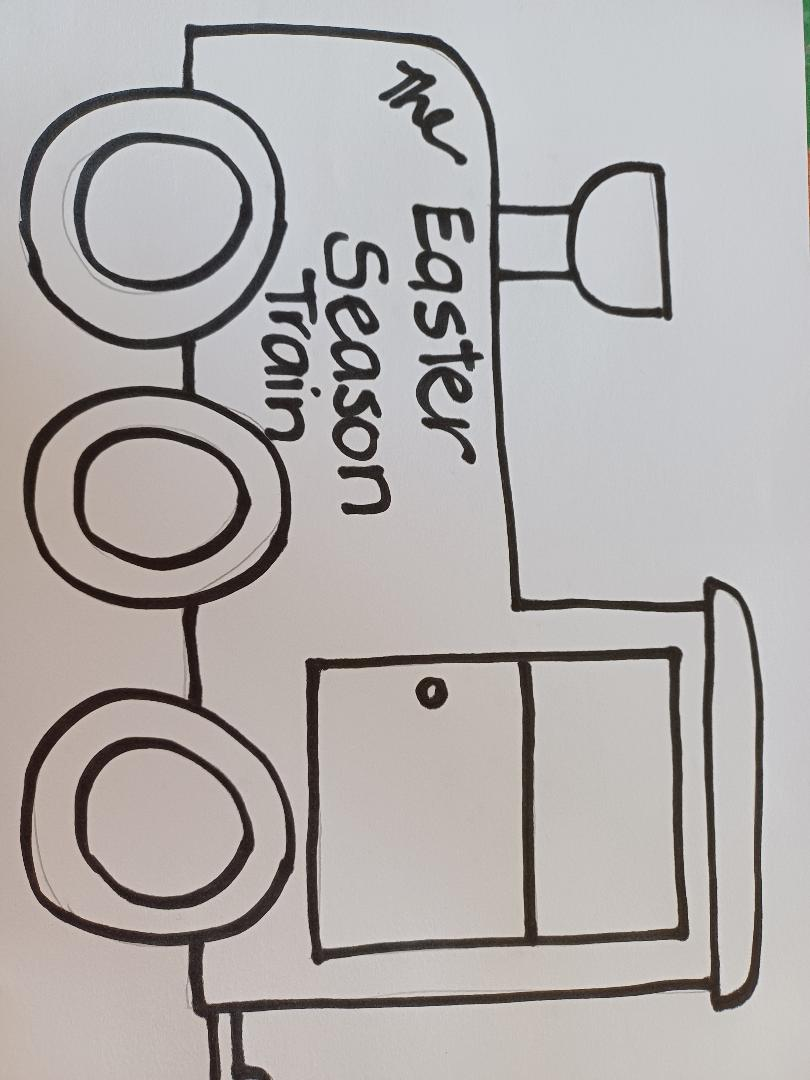 The Easter
Season
Train